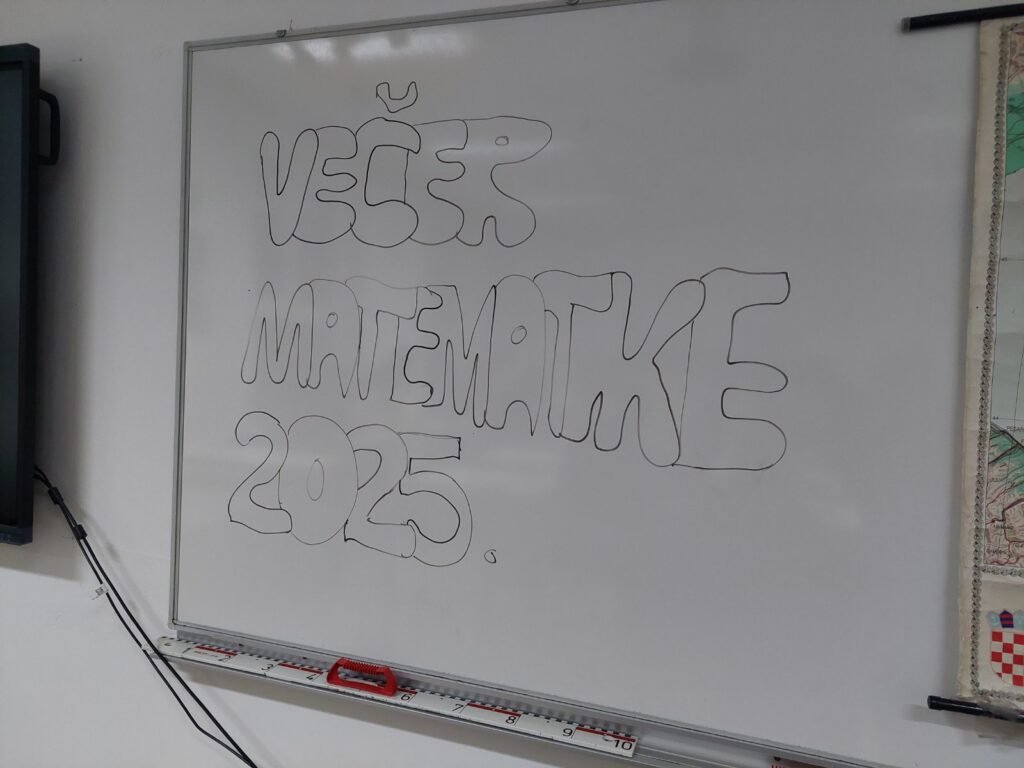 VEČER
MATEMATKE
2025.
1 2 3 4 6 7 8 9 10